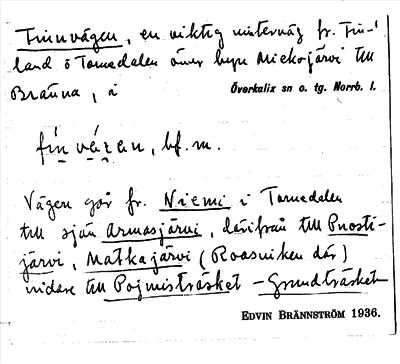 Finnvägen, en viktig vinterväg fr. Fin-
land ö Tornedalen över byn Miekojärvi till
Bränna, i Överkalix sn o. tg. Norrb. l.
bf. m.
Vägen går fr. Niemi i Tornedalen
till sjön Armasjärvi, därifrån till Puosti-
järvi, Matkajärvi (Roasviken där)
vidare till Pojmisträsket - Grundträsket
EDVIN BRÄNNSTRÖM 1936.